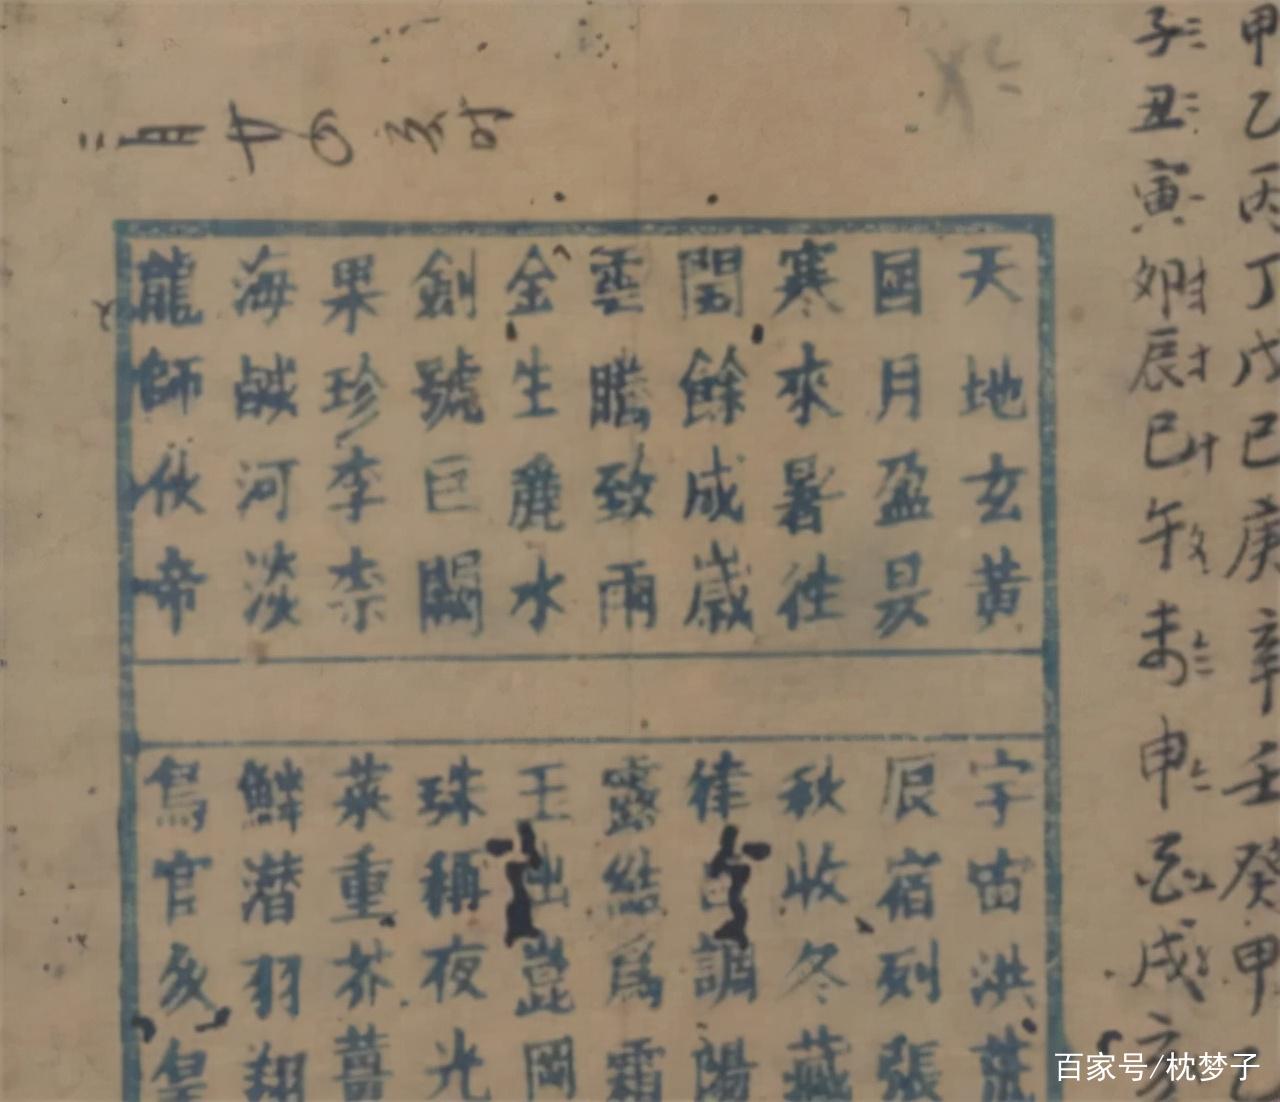 甲乙丙丁戊己庚辛壬癸甲乙
子丑寅卯辰巳午未申酉戌亥
天地玄黃
日月盈昃
寒來暑往
閏餘成歲
雲騰致雨
金生麗水
劍號巨闕
果珍李柰
海鹹河淡
龍師伙帝
宇宙洪荒
辰宿列張
秋收冬藏
律呂調陽
露結爲霜
玉出崑岡
珠稱夜光
菜重芥薑
鱗潛羽翔
鳥官皇
百家号/枕梦子